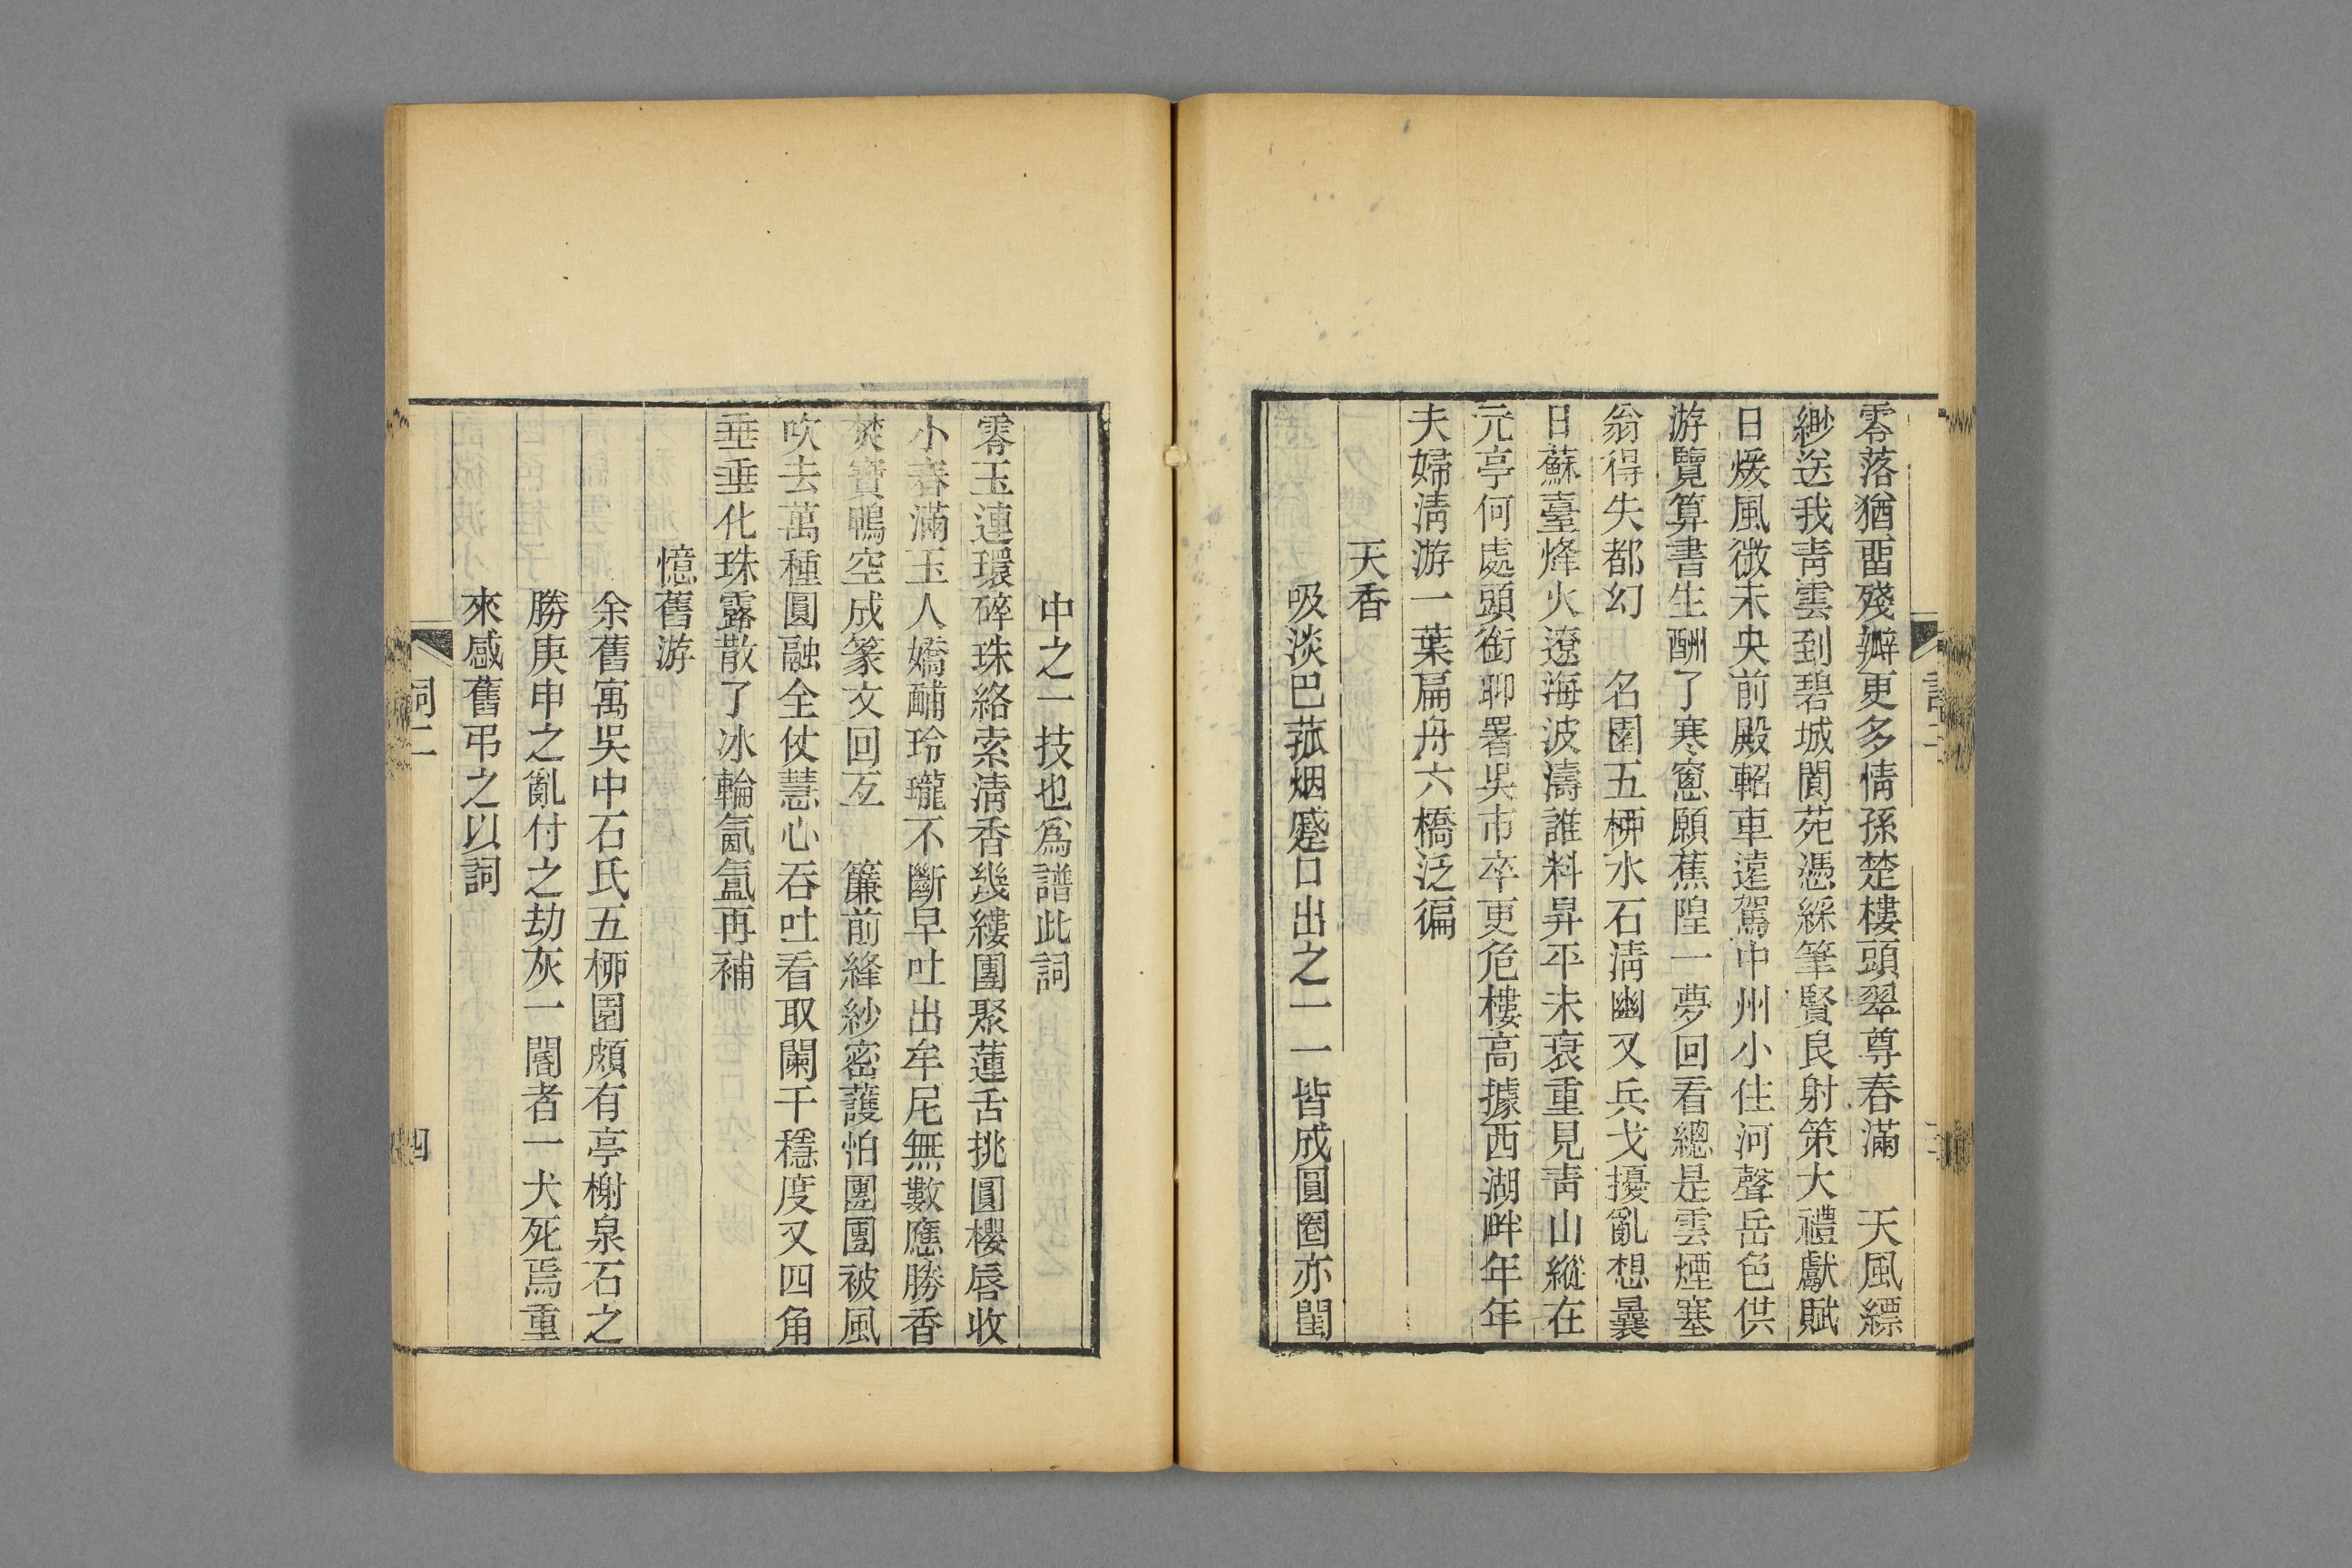 零落猶畱殘瓣更多情孫楚樓頭翠尊春滿　天風縹
緲送我靑雲到碧城閬苑憑綵筆賢良射策大禮獻賦
日煖風微未央前殿軺車遠駕中州小住河聲岳色供
游覽算書生酬了寒窻願蕉隍一夢回看總是雲煙塞
翁得失都幻　名園五桺水石淸幽又兵戈擾亂想曩
日蘇臺烽火遼海波濤誰料昇平未衰重見靑山縱在
元亭何處頭銜聊署吳市卒更危樓高據西湖畔年年
夫婦淸游一葉扁舟六橋泛徧
天香
吸淡巴菰烟蹙口出之一一皆成圓圈亦閨
中之一技也爲譜此詞
零玉連環碎珠絡索淸香幾縷團聚蓮舌挑圓櫻唇收
小春滿玉人嬌酺玲瓏不斷早吐出牟尼無數應勝香
焚寶鴨空成篆文回互　簾前縫紗密護怕團團被風
吹去萬種圓融全仗慧心吞吐看取闌干穩度又四角
垂垂化珠露散了冰輪氤氳再補
憶舊游
余舊寓吳中石氏五桺園頗有亭榭泉石之
勝庚申之亂付之劫灰一閽者一犬死焉重
來感舊弔之以詞
詞二
四